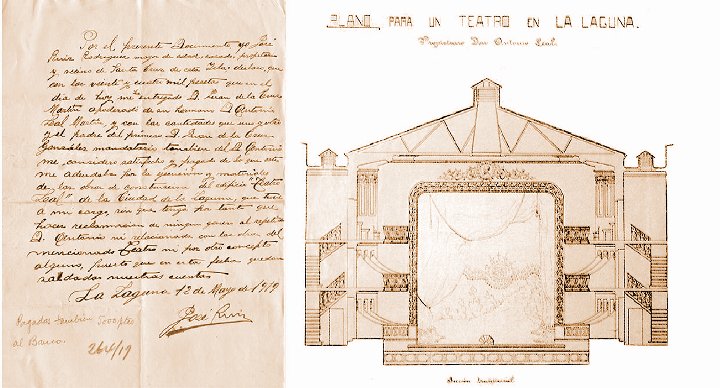 Por el presente Documento yo José
Ruiz Rodriguez mayor de edad, casado, propietario
y vecino de Santa Cruz de esta Isla; declaro, que
con las veinte y cuatro mil pesetas que en el
dia de hoy me ha entregado D. Juan de la Cruz
Martin apoderado de su hermano D. Antonio
Leal Martin y con las cantidades que me
el padre del primero D. Juan de la Cruz
Gonzalez mandatario tambien del D. Antonio
me considero satisfecho y pagado de lo que este
me adeudaba por la ejecucion y materiales
de las obras de construccion del edificio "Teatro
Leal" de la Ciudad de La Laguna, que tuve
a mi cargo, sin que tenga por tanto que
hacer reclamacion de ningun genero al repetido
D. Antonio ni relacionada con las obras del
mencionado Teatro ni por otro concepto
alguno, puesto que en esta fecha quedan
saldadas nuestras cuentas
La Laguna 12 de Mayo de 1919
José Ruiz
Pagados tambien
al Banco.
PLANO PARA UN TEATRO EN LA LAGUNA.
Propietario Don Antonio Leal.
Sección transversal